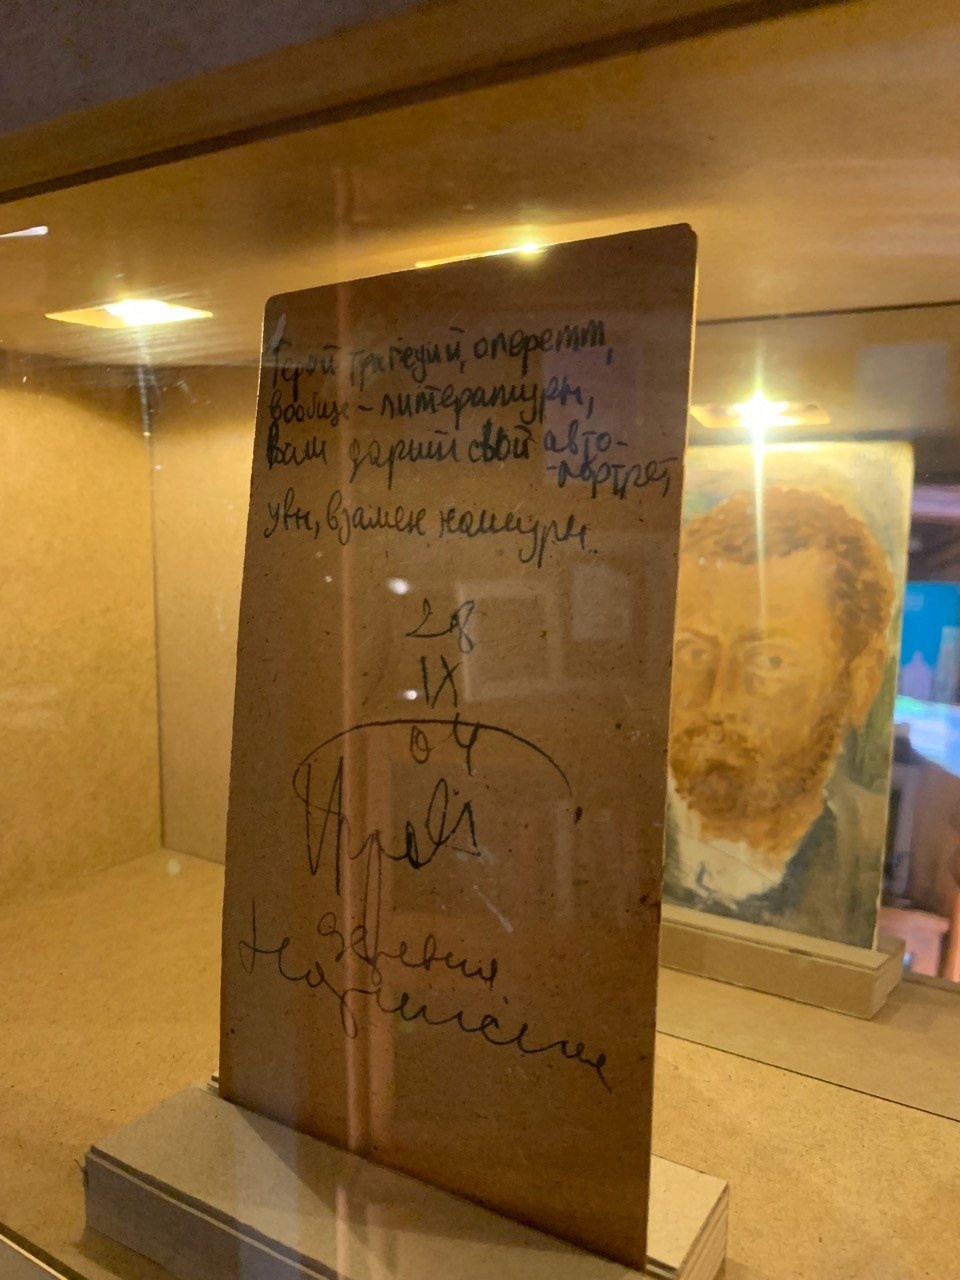 Герой трагедий, оперетт,
вообще - литературы,
Вам дарит свой авто-
-портрет,
увы, взамен натуры.
28
IX
04